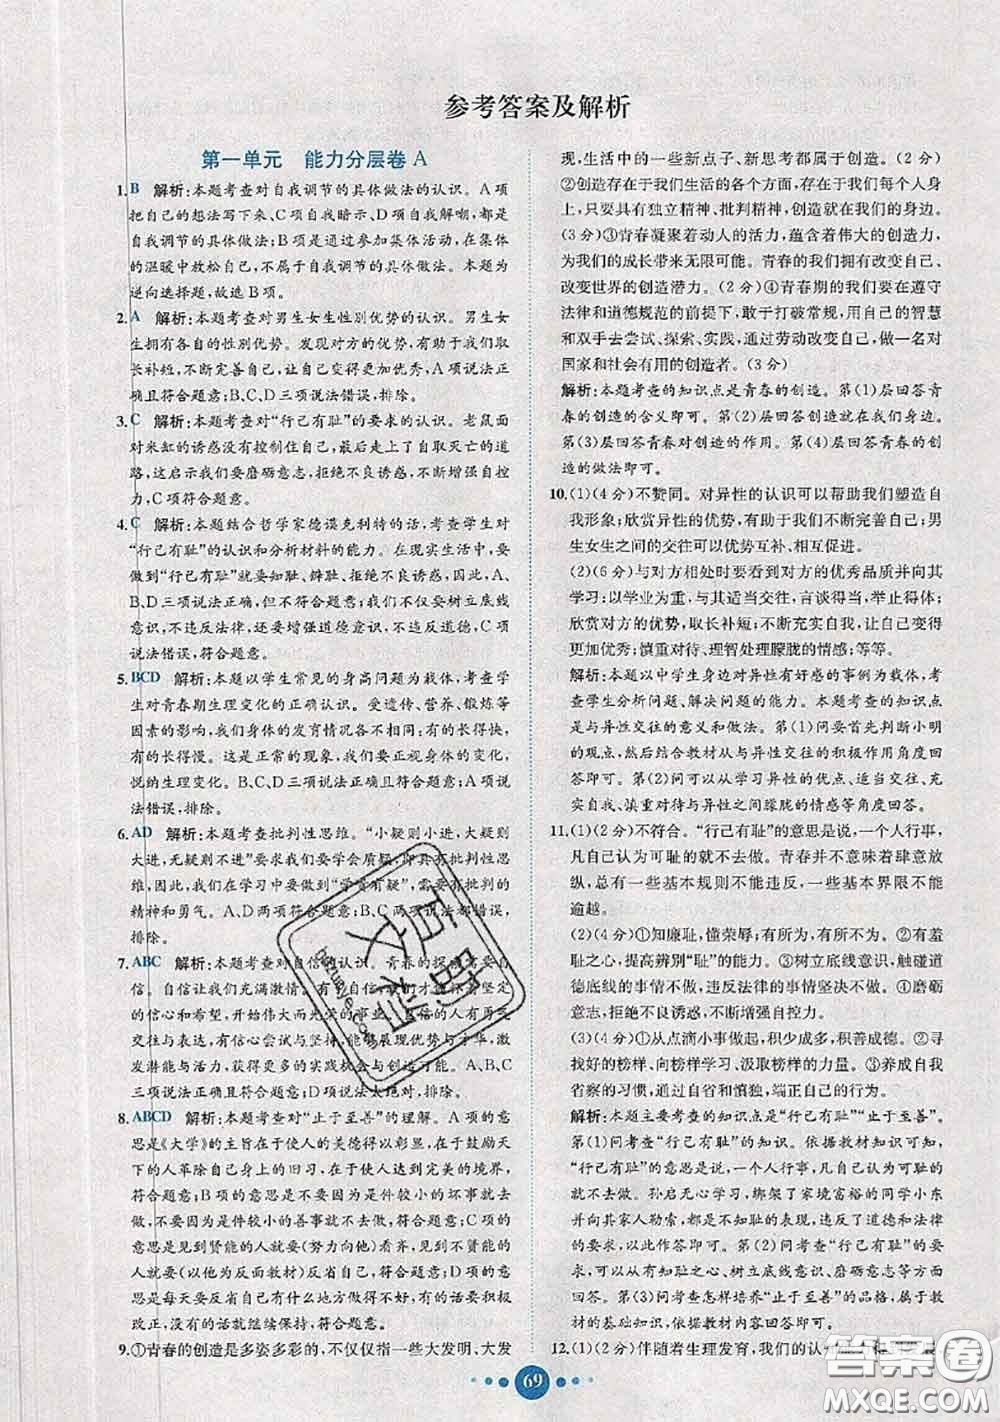 参考答案及解析
第一单元 能力分层卷A
1. B 解析:本题考查对自我调节的具体做法的认识。A项
把自己的想法写下来、C项自我暗示、D项自我解嘲,都是
自我调节的具体做法;B项是通过参加集体活动,在集体
的温暖中放松自己,不属于自我调节的具体做法。本题为
逆向选择题,故选B项。
2. A 解析:本题考查对男生女生性别优势的认识。男生女
生拥有各自的性别优势。发现对方的优势,有助于我们取
长补短,不断完善自己,让自己变得更加优秀,A项说法
正确且符合题意;B、C、D三项说法错误,排除。
3. C 解析:本题考查对“行己有耻”的要求的认识。老鼠面
对米缸的诱惑没有控制住自己,最后走上了自取灭亡的道
路,这启示我们要磨砺意志,拒绝不良诱惑,不断增强自控
力,C项符合题意。
4. C 解析:本题结合哲学家德谟克利特的话,考查学生对
“行己有耻”的认识和分析材料的能力。在现实生活中,要
做到“行己有耻”就要知耻、辨耻、拒绝不良诱惑,因此,A、
B、D三项说法正确,但不符合题意;我们不仅要树立底线
意识,不违反法律,还要增强道德观念,不违反道德,C项
说法错误,符合题意。
5. BCD 解析:本题以学生常见的身高问题为载体,考查学
生对青春期生理变化的正确认识。受遗传、营养、锻炼等
因素的影响,每个人身体的发育情况各不相同,有的长得快,
有的长得慢。这是正常的现象,我们要正视身体的变化,
悦纳生理变化。B、C、D三项说法正确且符合题意;A项说
法错误,排除。
6. AD 解析:本题考查批判性思维。“小疑则小进,大疑则
大进,无疑则不进”要求我们学会质疑,即具有批判性思
维,因此,我们在学习中要做到“学贵有疑”,要有批判的
精神和勇气。A、D两项符合题意;B、C两项说法错误,
排除。
7. ABC 解析:本题考查对自信的认识。青春的探索需要自
信。自信让我们充满激情。有了自信,我们才能怀着坚定
的信心和希望,开始伟大而光荣的事业。自信的人有勇气
交往与表达,有信心尝试与坚持,能够展现优势与才华,激
发潜能与活力,获得更多的实践机会与创造可能。A、B、C
三项说法正确且符合题意;D项说法太绝对,排除。
8. ABCD 解析:本题考查对“止于至善”的理解。A项的意
思是《大学》的主旨在于使人的美德得以彰显,在于鼓励天
下的人革除自己身上的旧习,在于使人达到完美的境界,
符合题意;B项的意思是不要因为是件较小的坏事就去
做,不要因为是件较小的善事就不去做,符合题意;C项的
意思是见到贤能的人就要(努力向他)看齐,见到不贤的人
就要(以他为反面教材)反省自己,符合题意;D项的意思
是反省自己有没有什么地方做得不好,有的话要及时改正,
没有的话就继续保持,符合题意。
9. ①青春的创造是多姿多彩的,不仅仅指一些大发明、大发
现,生活中的一些新点子、新思考都属于创造。(2分)
②创造存在于我们生活的各个方面,存在于我们每个人身
上,只要具有独立精神、批判精神,创造就在我们的身边。
(3分)③青春凝聚着动人的活力,蕴含着伟大的创造力,
为我们的成长带来无限可能。青春的我们拥有改变自己、
改变世界的创造潜力。(2分)④青春期的我们要在遵守
法律和道德规范的前提下,敢于打破常规,用自己的智慧
和双手去尝试、探索、实践,通过劳动改变自己,做一名对
国家和社会有用的创造者。(3分)
解析:本题考查的知识点是青春的创造。第(1)层回答青
春的创造的含义即可。第(2)层回答创造就在我们身边。
第(3)层回答青春对创造的作用。第(4)层回答青春的创
造的做法即可。
10. (1)(4分)不赞同。对异性的认识可以帮助我们塑造自
我形象;欣赏异性的优势,有助于我们不断完善自己;男
生女生之间的交往可以优势互补、相互促进。
(2)(6分)与对方相处时要看到对方的优秀品质并向其
学习;以学业为重,与其适当交往,言谈得当,举止得体;
欣赏对方的优势,取长补短;不断充实自己,让自己变得
更加优秀;慎重对待、理智处理朦胧的情感;等等。
解析:本题以中学生身边对异性有好感的事例为载体,考
查学生分析问题、解决问题的能力。本题考查的知识点
是与异性交往的意义和做法。第(1)问要首先判断小明
的观点,然后结合教材从与异性交往的积极作用角度来
回答即可。第(2)问可以从学习异性的优点、适当交往、充
实自我、慎重对待与异性之间朦胧的情感等角度回答。
11. (1)(2分)不符合。“行己有耻”的意思是说,一个人行事,
凡自己认为可耻的就不去做。青春并不意味着肆意放
纵,总有一些基本规则不能违反,一些基本界限不能
逾越。
(2)(4分)①知廉耻,懂荣辱;有所为,有所不为。②有羞
耻之心,提高辨别“耻”的能力。③树立底线意识,触碰道
德底线的事情不做,违反法律的事情坚决不做。④磨砺
意志,拒绝不良诱惑,不断增强自控力。
(3)(4分)①从点滴小事做起,积少成多,积善成德。②寻
找好的榜样,向榜样学习,汲取榜样的力量。③养成自我
省察的习惯,通过自省和慎独,端正自己的行为。
解析:本题主要考查的知识点是“行己有耻”“止于至善”。
第(1)问考查“行己有耻”的知识。依据教材知识可知,
“行己有耻”的意思是说,一个人行事,凡自己认为可耻的
就不去做。孙启无心学习,绑架了家境富裕的同学小东
并向其家人勒索,都是不知耻的表现,违反了道德和法律
的要求,以此作答即可。第(2)问考查“行己有耻”的要
求,可以从要有知耻之心、树立底线意识、磨砺意志等方面
回答。第(3)问考查怎样培养“止于至善”的品格,属于教材
的基础知识,依据教材内容回答即可。
12. (1)(2分)伴随着生理发育,我们的认
69
百事文档
答案圈
MXQE.COM